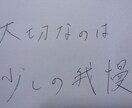 大切なのは
少しの我慢